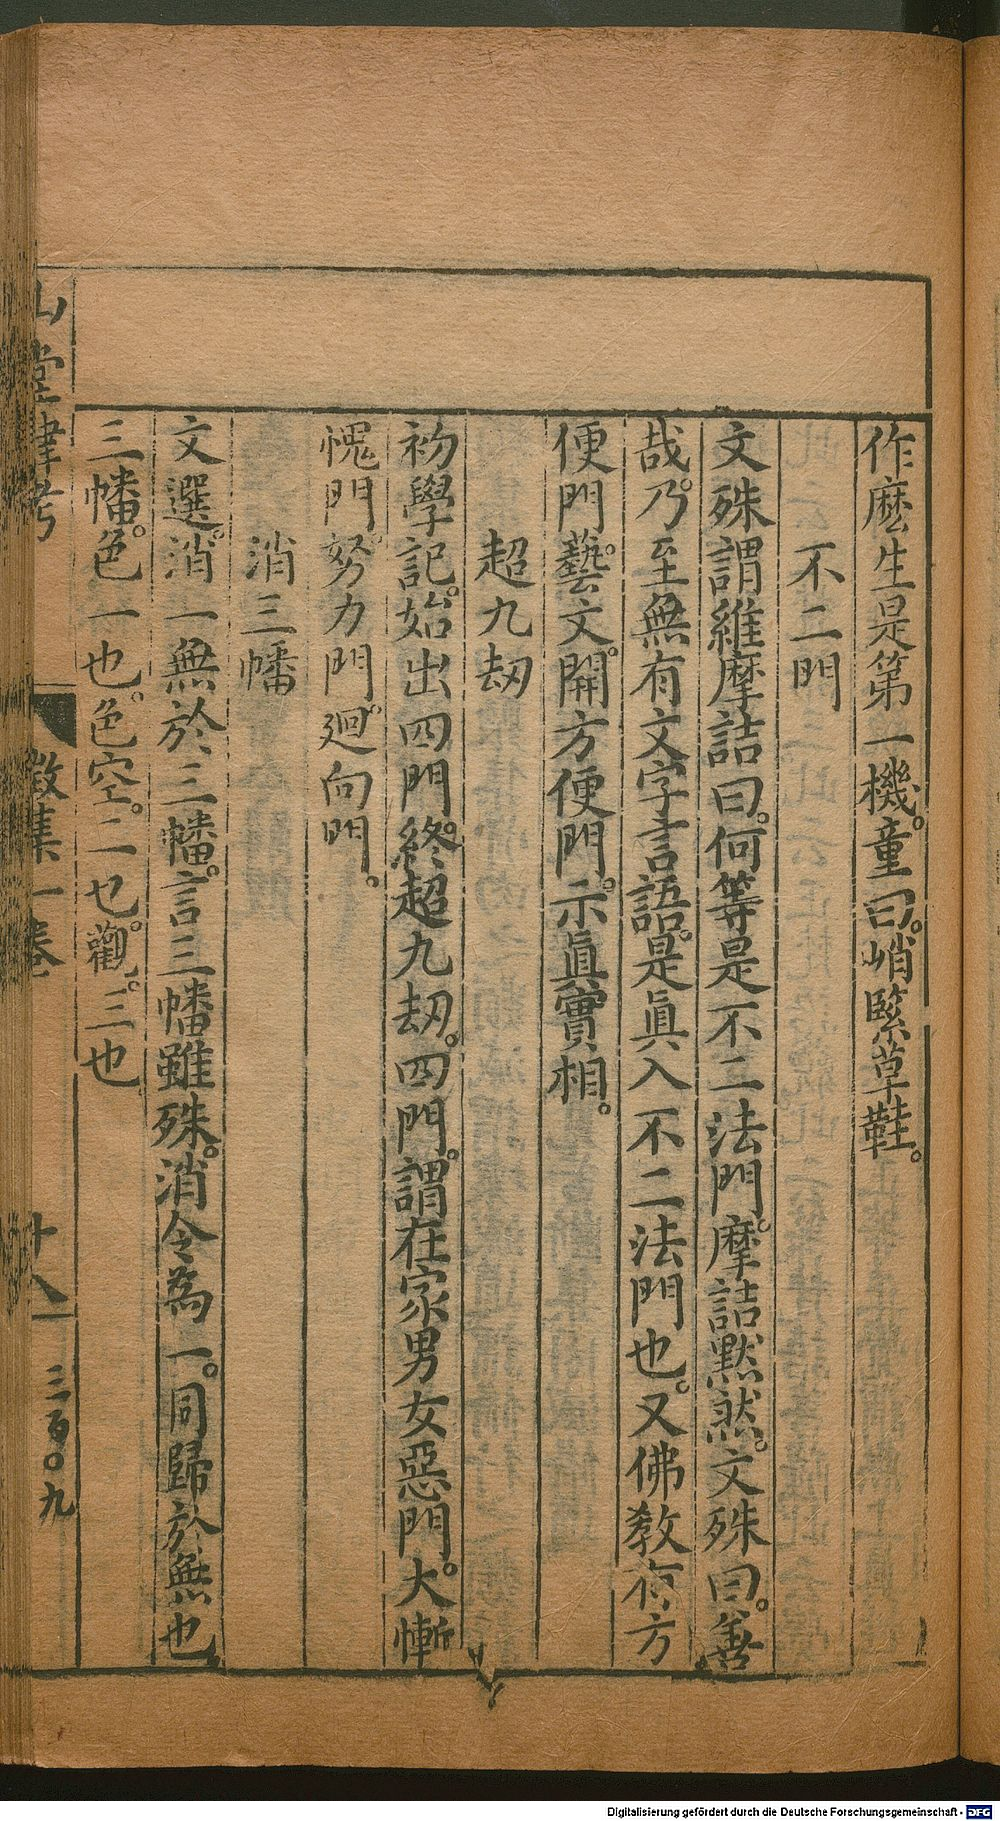 作麽生是第一機。童曰。峭緊草鞋。
不二門
文殊謂維摩詰曰。何等是不二法門。摩詰默然。文殊曰。善
哉。乃至無有文字言語。是眞入不二法門也。又佛教有方
便門。藝文。開方便門。示眞實相。
超九刼
初學記。始出四門。終超九刼。四門。謂在家男女惡門。大慚
愧門。努力門。廻向門。
消三幡
文選。消一無於三幡。言三幡雖殊。消令為一。同歸於無也
三幡。色一也。色空。二也。觀。三也
山堂肆考
徵集一卷
十八
三百〇九
Digitalisierung gefördert durch die Deutsche Forschungsgemeinschaft - DFG